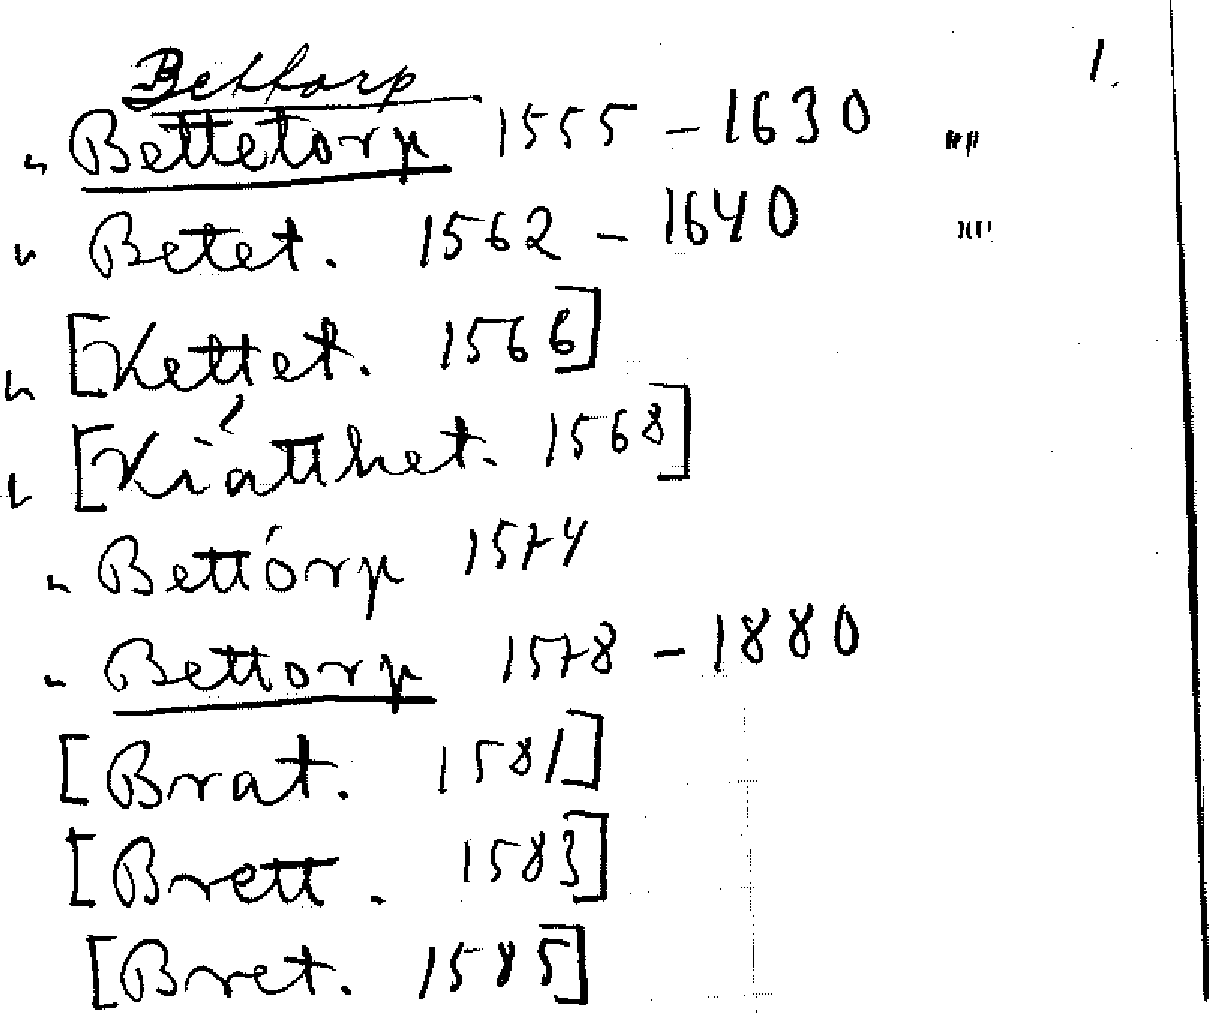 Bettorp 1.
" Bettetorp 1555 – 1630 " "
" Betet. 1562 – 1640 " "
" [Kettet. 1566]
" [Kiátthet. 1568]
" Bettórp 1574
" Bettorp 1578 – 1880
[Brat. 1581]
[Brett. 1583]
[Bret. 1585]